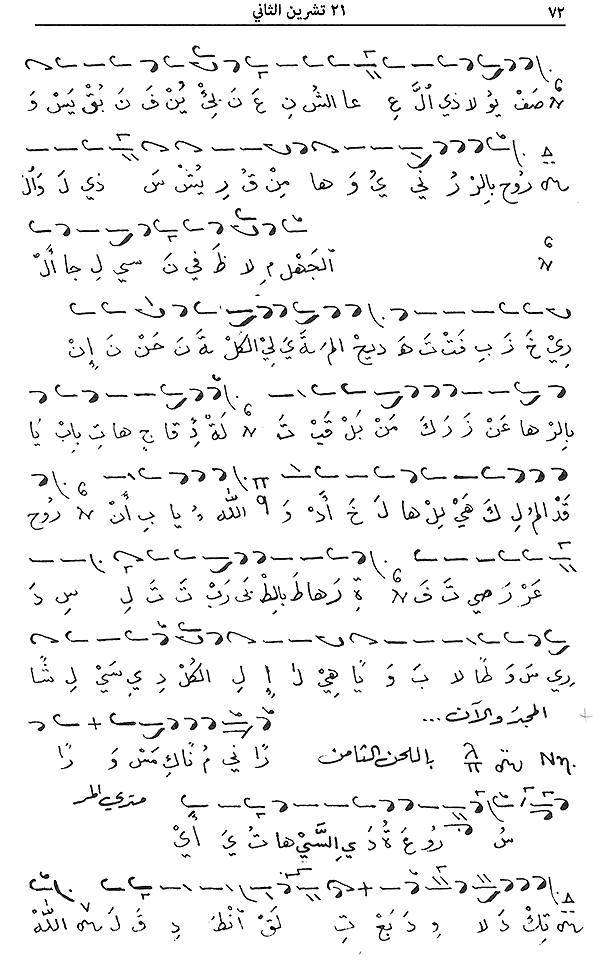 ٧٢ ٢١ تشرين الثاني
صَفْ يوُ لا ذي ٱلَّ عِ عا الشُ نِ عَ نَ يُنْ فَ نَ بُقْ يَسْ وَ
رُوح بِالرْ رُ ني يُ وَ ها مِنْ قُ رِ يُشْ سَ ذي لَ وَٱلْ
ٱلجَهْلِ مِ لا ظَ في نَ سي لِ جا أَلْ
رِيْ خَ زَ بِ فَتْ تَ هَ ديحْ المَ ةَ يَ لِيْ الكُلْ ةَ نَ حَنْ نَ إِنْ
بِالرْ ها عَنْ زَ رَ كَ مَنْ بَلْ قَيْ تَ لَةْ ذِ قا جِ ها تِ بابْ يا
قَدْ المُ لِ كَ هَيْ لِلْ ها لَ خَ أَدْ وَ اللهْ ءُ يا بِ أَنْ رُوح
عَرْ رَ صي تَ فَ ةِ رَ هاطَ بِالطْ رَبْ تَ تَ لِ سِ دَ
رِي سَ وَ طا لا بَ وَ يا هِيْ إِ لِ الكُلْ دِ يِ سَيْ لِ شا
المجد والآن...
باللحن الثامن زا في مُ ناكِ مَسْ وَ زا
متري المر
سُ رُوعَةُ دَ يِ السَّيْ ها تُ يَ أَيْ
تِكْ دَ لا وِ دَ بَعْ تِ لَقْ ٱنْطَ دِ قَ لَ اللهْ